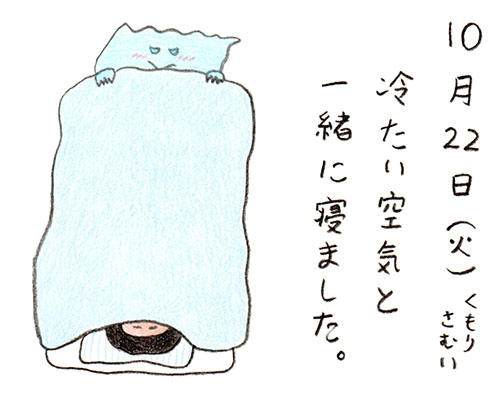 10月22日(火)
くもり
さむい
冷たい空気と
一緒に寝ました。